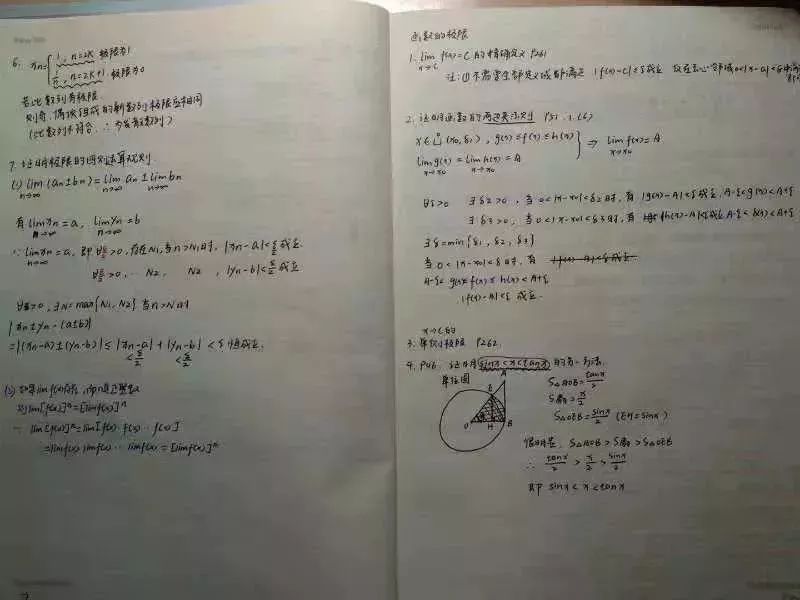 6. xn={1, n=2k 极限为1
1/n, n=2k+1. 极限为0
若此数列有极限.
则奇、偶项组成的新数列极限应相同
(此数列不符合, ∴为发散数列)
7. 证明极限的四则运算规则.
(1) lim(an±bn)=lim an ± lim bn
n→∞ n→∞ n→∞
有 lim xn=a, lim yn=b
n→∞ n→∞
∵ lim xn=a, 即∀ε>0, 存在N1, 当n>N1时, |xn-a|<ε/2 成立.
n→∞
∀ε>0, ... N2, N2, |yn-b|<ε/2 成立
∀ε>0, ∃N=max{N1, N2} 当n>N时
|xn±yn-(a±b)|
=|(xn-a)±(yn-b)|≤|xn-a|+|yn-b|<ε 恒成立.
<ε/2 <ε/2
(2) 如果lim f(x)存在, 而n是正整数
则lim[f(x)]ⁿ=[lim f(x)]ⁿ
∵ lim[f(x)]ⁿ=lim[f(x)·f(x)…f(x)]
=lim f(x)·lim f(x)…lim f(x)=[lim f(x)]ⁿ
函数的极限
1. lim f(x)=C 的精确定义 P261
x→C
2. 证明函数的两边夹法则 P31 1.(6)
x∈Ů(x0,δ1), g(x)≤f(x)≤h(x)
lim g(x)=lim h(x)=A } ⇒ lim f(x)=A
x→x0 x→x0 x→x0
∀ε>0 ∃δ2>0, 当0<|x-x0|<δ2时, 有 |g(x)-A|<ε成立, A-ε<g(x)<A+ε
∃δ3>0, 当0<|x-x0|<δ3时, 有 |h(x)-A|<ε成立 A-ε<h(x)<A+ε
∃δ=min{δ1, δ2, δ3}
当0<|x-x0|<δ时, 有
A-ε<g(x)≤f(x)≤h(x)<A+ε
|f(x)-A|<ε 成立.
x→∞的
3. 单侧极限 P262.
4. P46. 证明 sinx<x<tanx 的另一方法.
单位圆
A
E
O H B
S△AOB=tanx/2
S扇=x/2
S△OEB=sinx/2 (EH=sinx)
很明显, S△AOB>S扇>S△OEB
∴ tanx/2 > x/2 > sinx/2
即 sinx<x<tanx